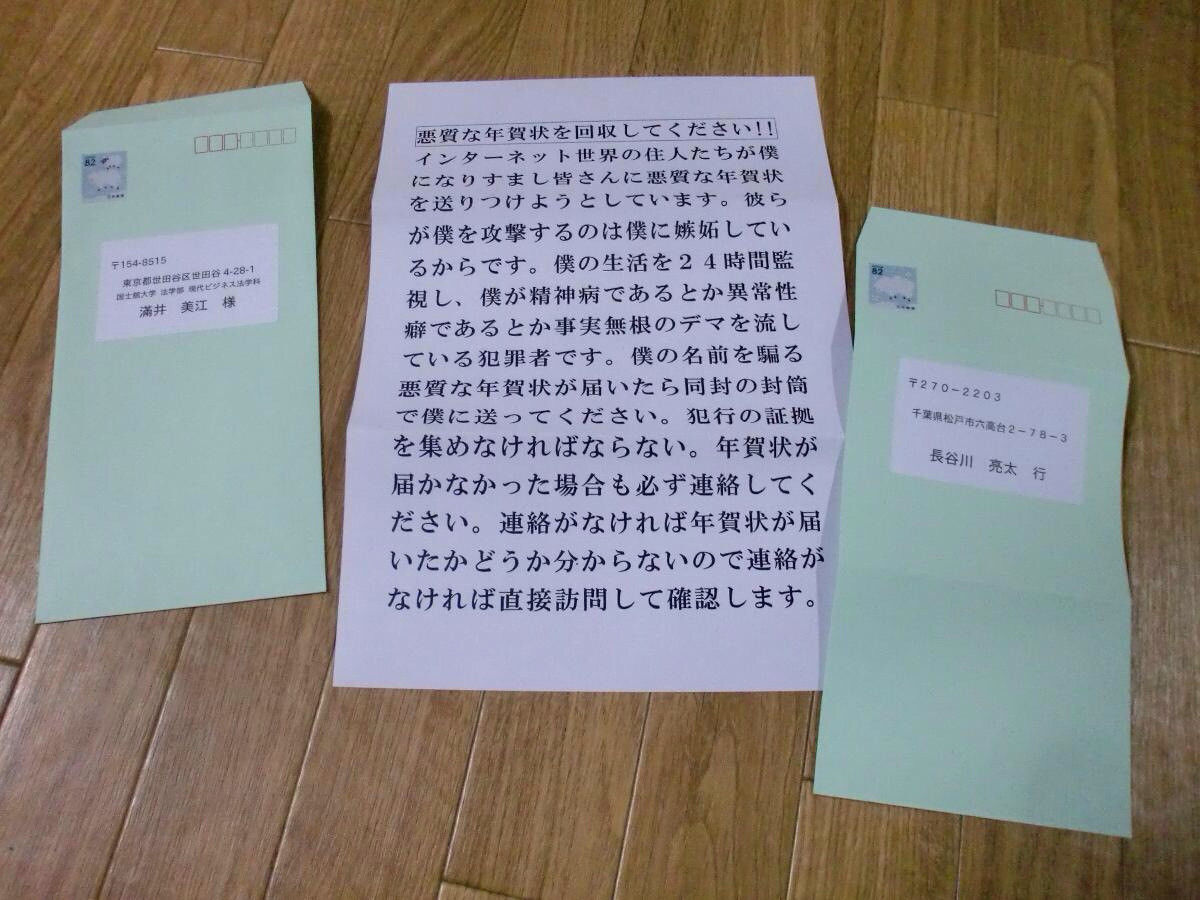 82
〒154-8515
東京都世田谷区世田谷 4-28-1
国士舘大学 法学部 現代ビジネス法学科
満井 美江 様
悪質な年賀状を回収してください!!
インターネット世界の住人たちが僕
になりすまし皆さんに悪質な年賀状
を送りつけようとしています。彼ら
が僕を攻撃するのは僕に嫉妬してい
るからです。僕の生活を24時間監
視し、僕が精神病であるとか異常性
癖であるとか事実無根のデマを流し
ている犯罪者です。僕の名前を騙る
悪質な年賀状が届いたら同封の封筒
で僕に送ってください。犯行の証拠
を集めなければならない。年賀状が
届かなかった場合も必ず連絡してく
ださい。連絡がなければ年賀状が届
いたかどうか分からないので連絡が
なければ直接訪問して確認します。
82
〒270-2203
千葉県松戸市六高台2-78-3
長谷川 亮太 行